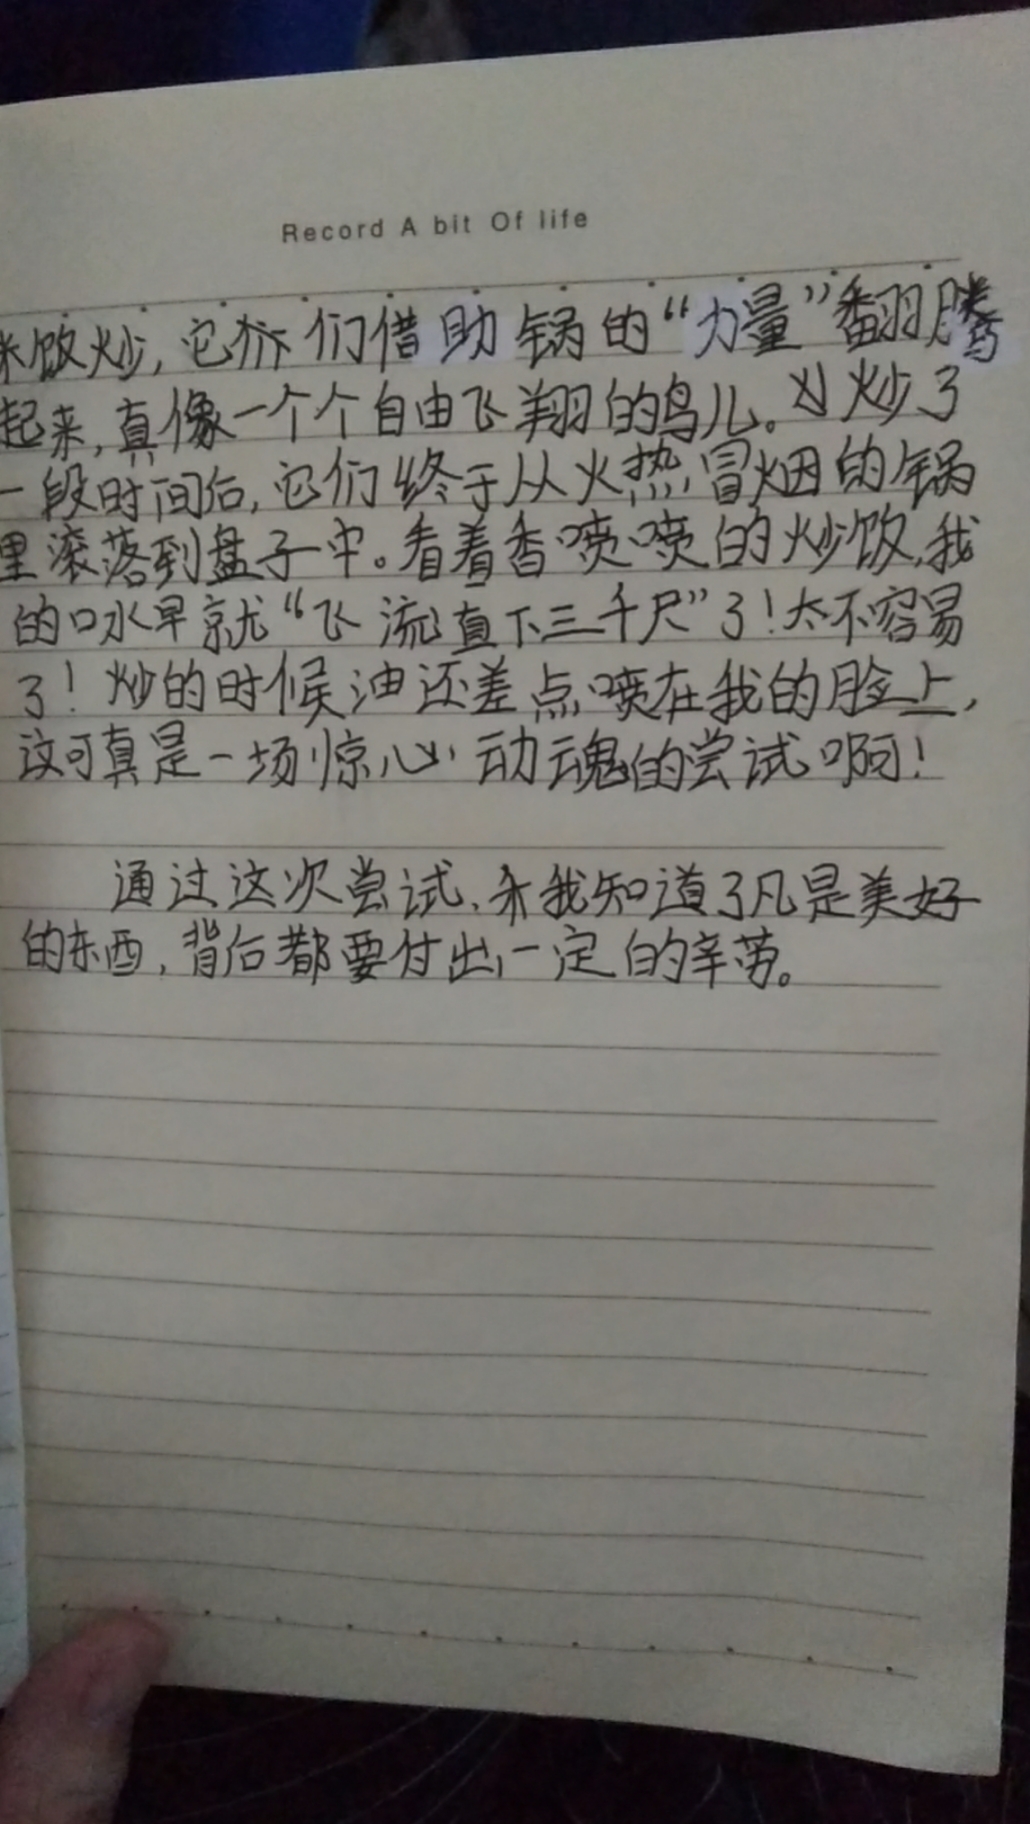 Record A bit Of life
米饭炒，它们借助锅的“力量”翻腾
起来，真像一个个自由飞翔的鸟儿。炒了
一段时间后，它们终于从火热冒烟的锅
里滚落到盘子中。看着香喷喷的炒饭，我
的口水早就“飞流直下三千尺”了！太不容易
了！炒的时候油还差点喷在我的脸上，
这可真是一场惊心动魂的尝试啊！
通过这次尝试，我知道了凡是美好
的东西，背后都要付出一定的辛劳。